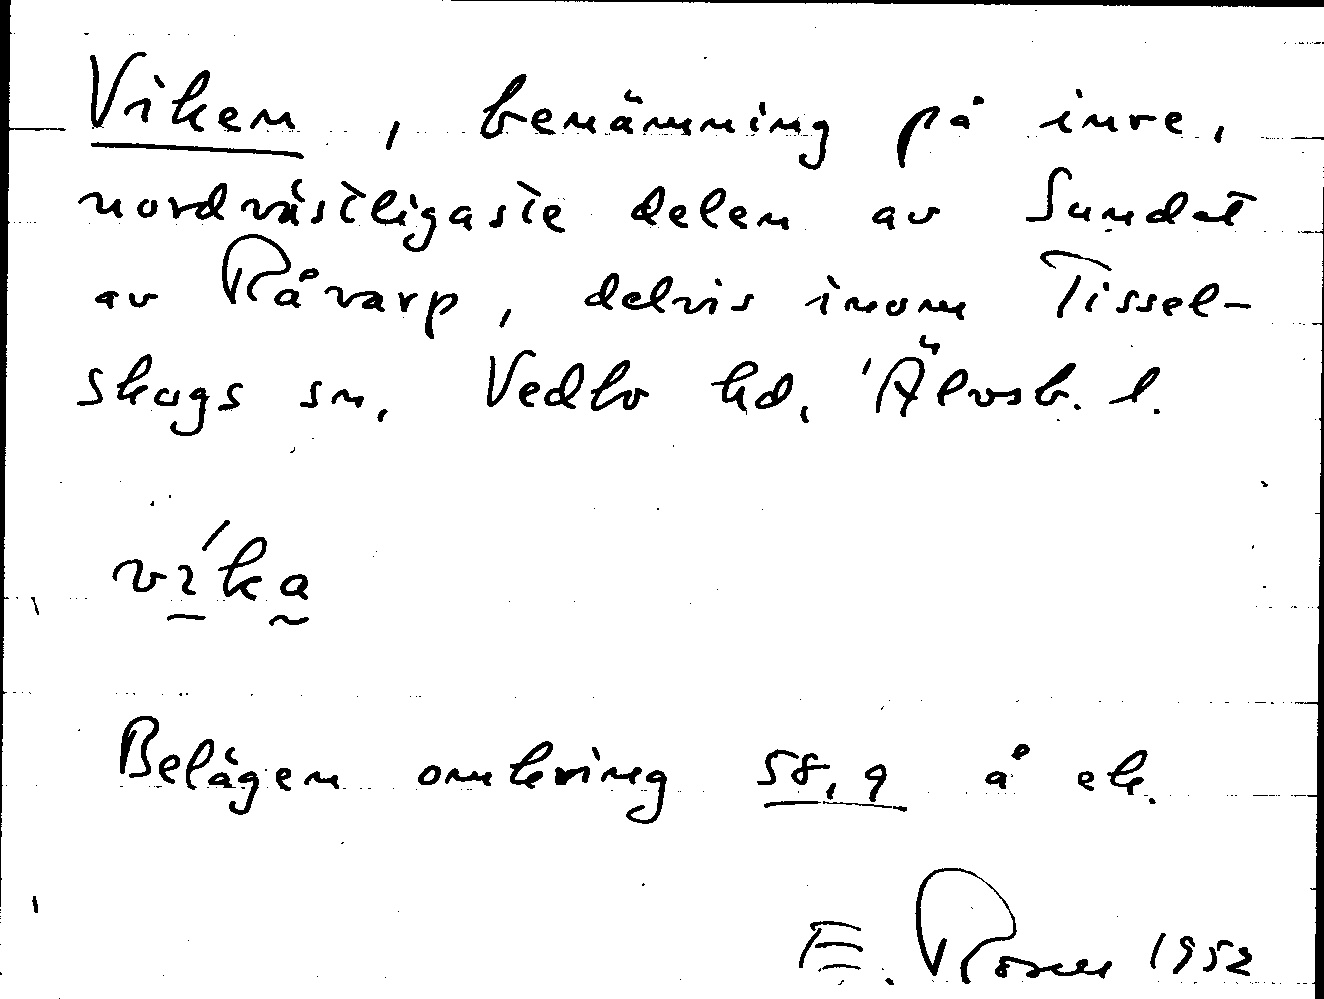 Viken, benämning på inre,
nordvästligaste delen av Sundet
av Råvarp, delvis inom Tissel-
skogs sn, Vedbo hd, Älvsb. l.
vi'ka
Belägen omkring 58,9 å ek.
E. Rosell 1952